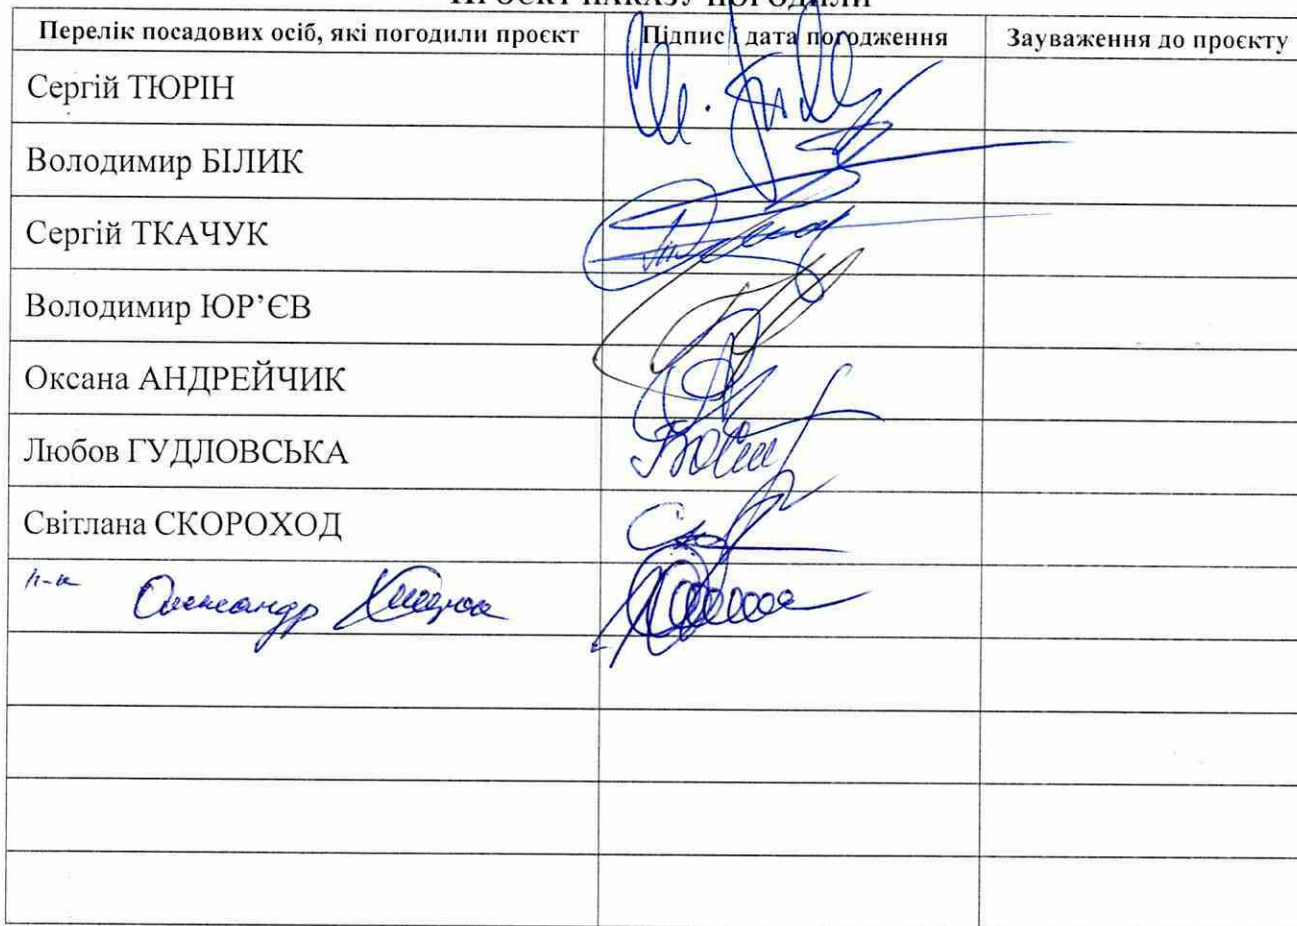 ПРОЄКТ НАКАЗУ ПОГОДИЛИ
Перелік посадових осіб, які погодили проєкт Підпис і дата погодження Зауваження до проєкту
Сергій ТЮРІН
Володимир БІЛИК
Сергій ТКАЧУК
Володимир ЮР’ЄВ
Оксана АНДРЕЙЧИК
Любов ГУДЛОВСЬКА
Світлана СКОРОХОД
Олександр